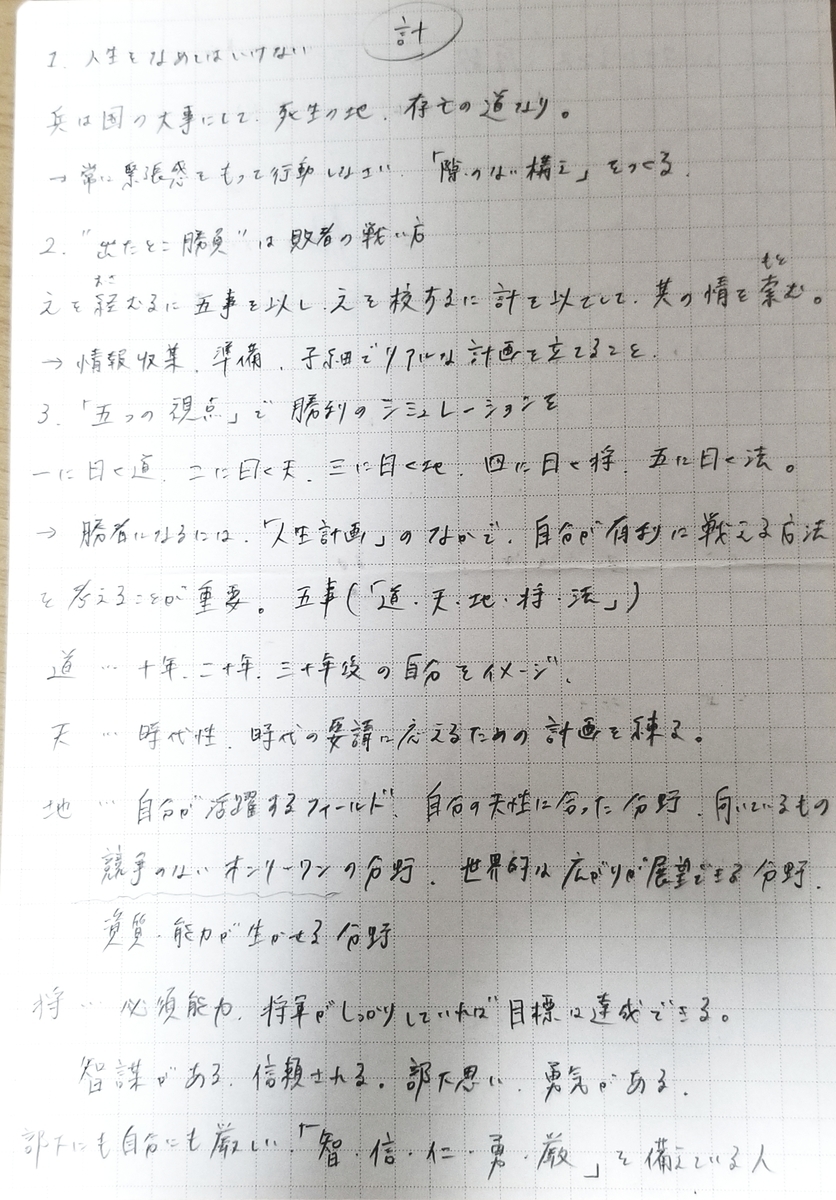 計
1. 人生をなめてはいけない
兵は国の大事にして、死生の地、存亡の道なり。
→ 常に緊張感をもって行動しなさい。「隙のない構え」をつくる。
2. "出たとこ勝負"は敗者の戦い方
之を経むるに五事を以し、之を校するに計を以てして、其の情を索む。
→ 情報収集、準備、子細でリアルな計画を立てることを。
3. 「五つの視点」で勝利のシミュレーションを
一に曰く道、二に曰く天、三に曰く地、四に曰く将、五に曰く法。
→ 勝者になるには、「人生計画」のなかで、自分が有利に戦える方法
を考えることが重要。五事(「道・天・地・将・法」)
道 … 十年、二十年、三十年後の自分をイメージ。
天 … 時代性、時代の要請に応えるための計画を練る。
地 … 自分が活躍するフィールド、自分の天性に合った分野、向いているもの
競争のないオンリーワンの分野、世界的な広がりが展望できる分野、
資質・能力が生かせる分野
将 … 必須能力、将軍がしっかりしていれば目標は達成できる。
智謀がある、信頼される。部下思い、勇気がある、
部下にも自分にも厳しい、「智・信・仁・勇・厳」を備えている人